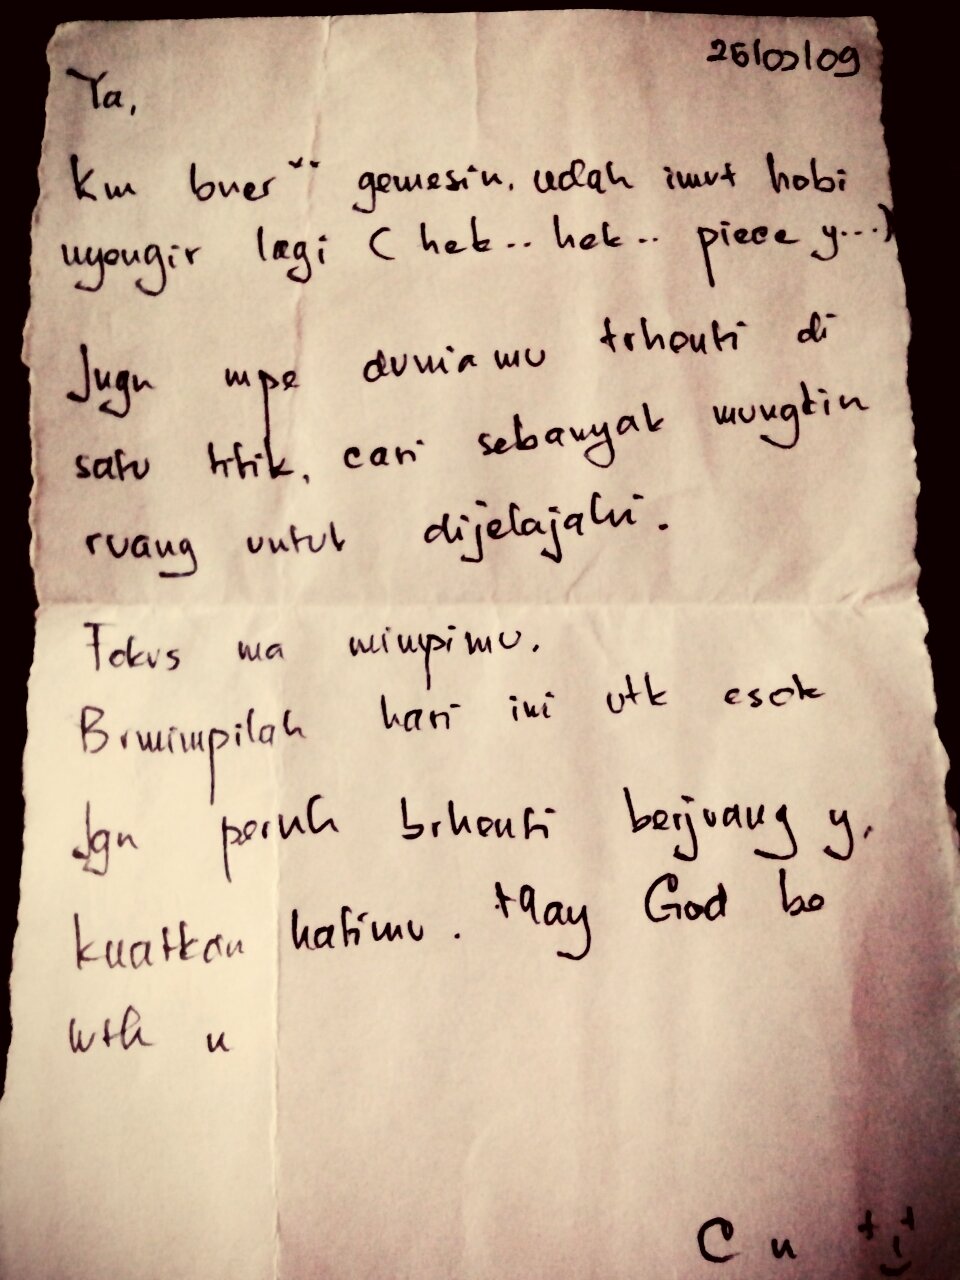 25/03/09
Ya,
Km bner" gemesin. udah imut hobi
nyengir lagi ( hek.. hek.. piece y...)
Jngn mpe duniamu trhenti di
satu titik, cari sebanyak mungkin
ruang untuk dijelajahi.
Fokus ma mimpimu.
Brmimpilah hari ini utk esok
Jgn pernh brhenti berjuang y,
kuatkan hatimu. May God be
wth u
C u